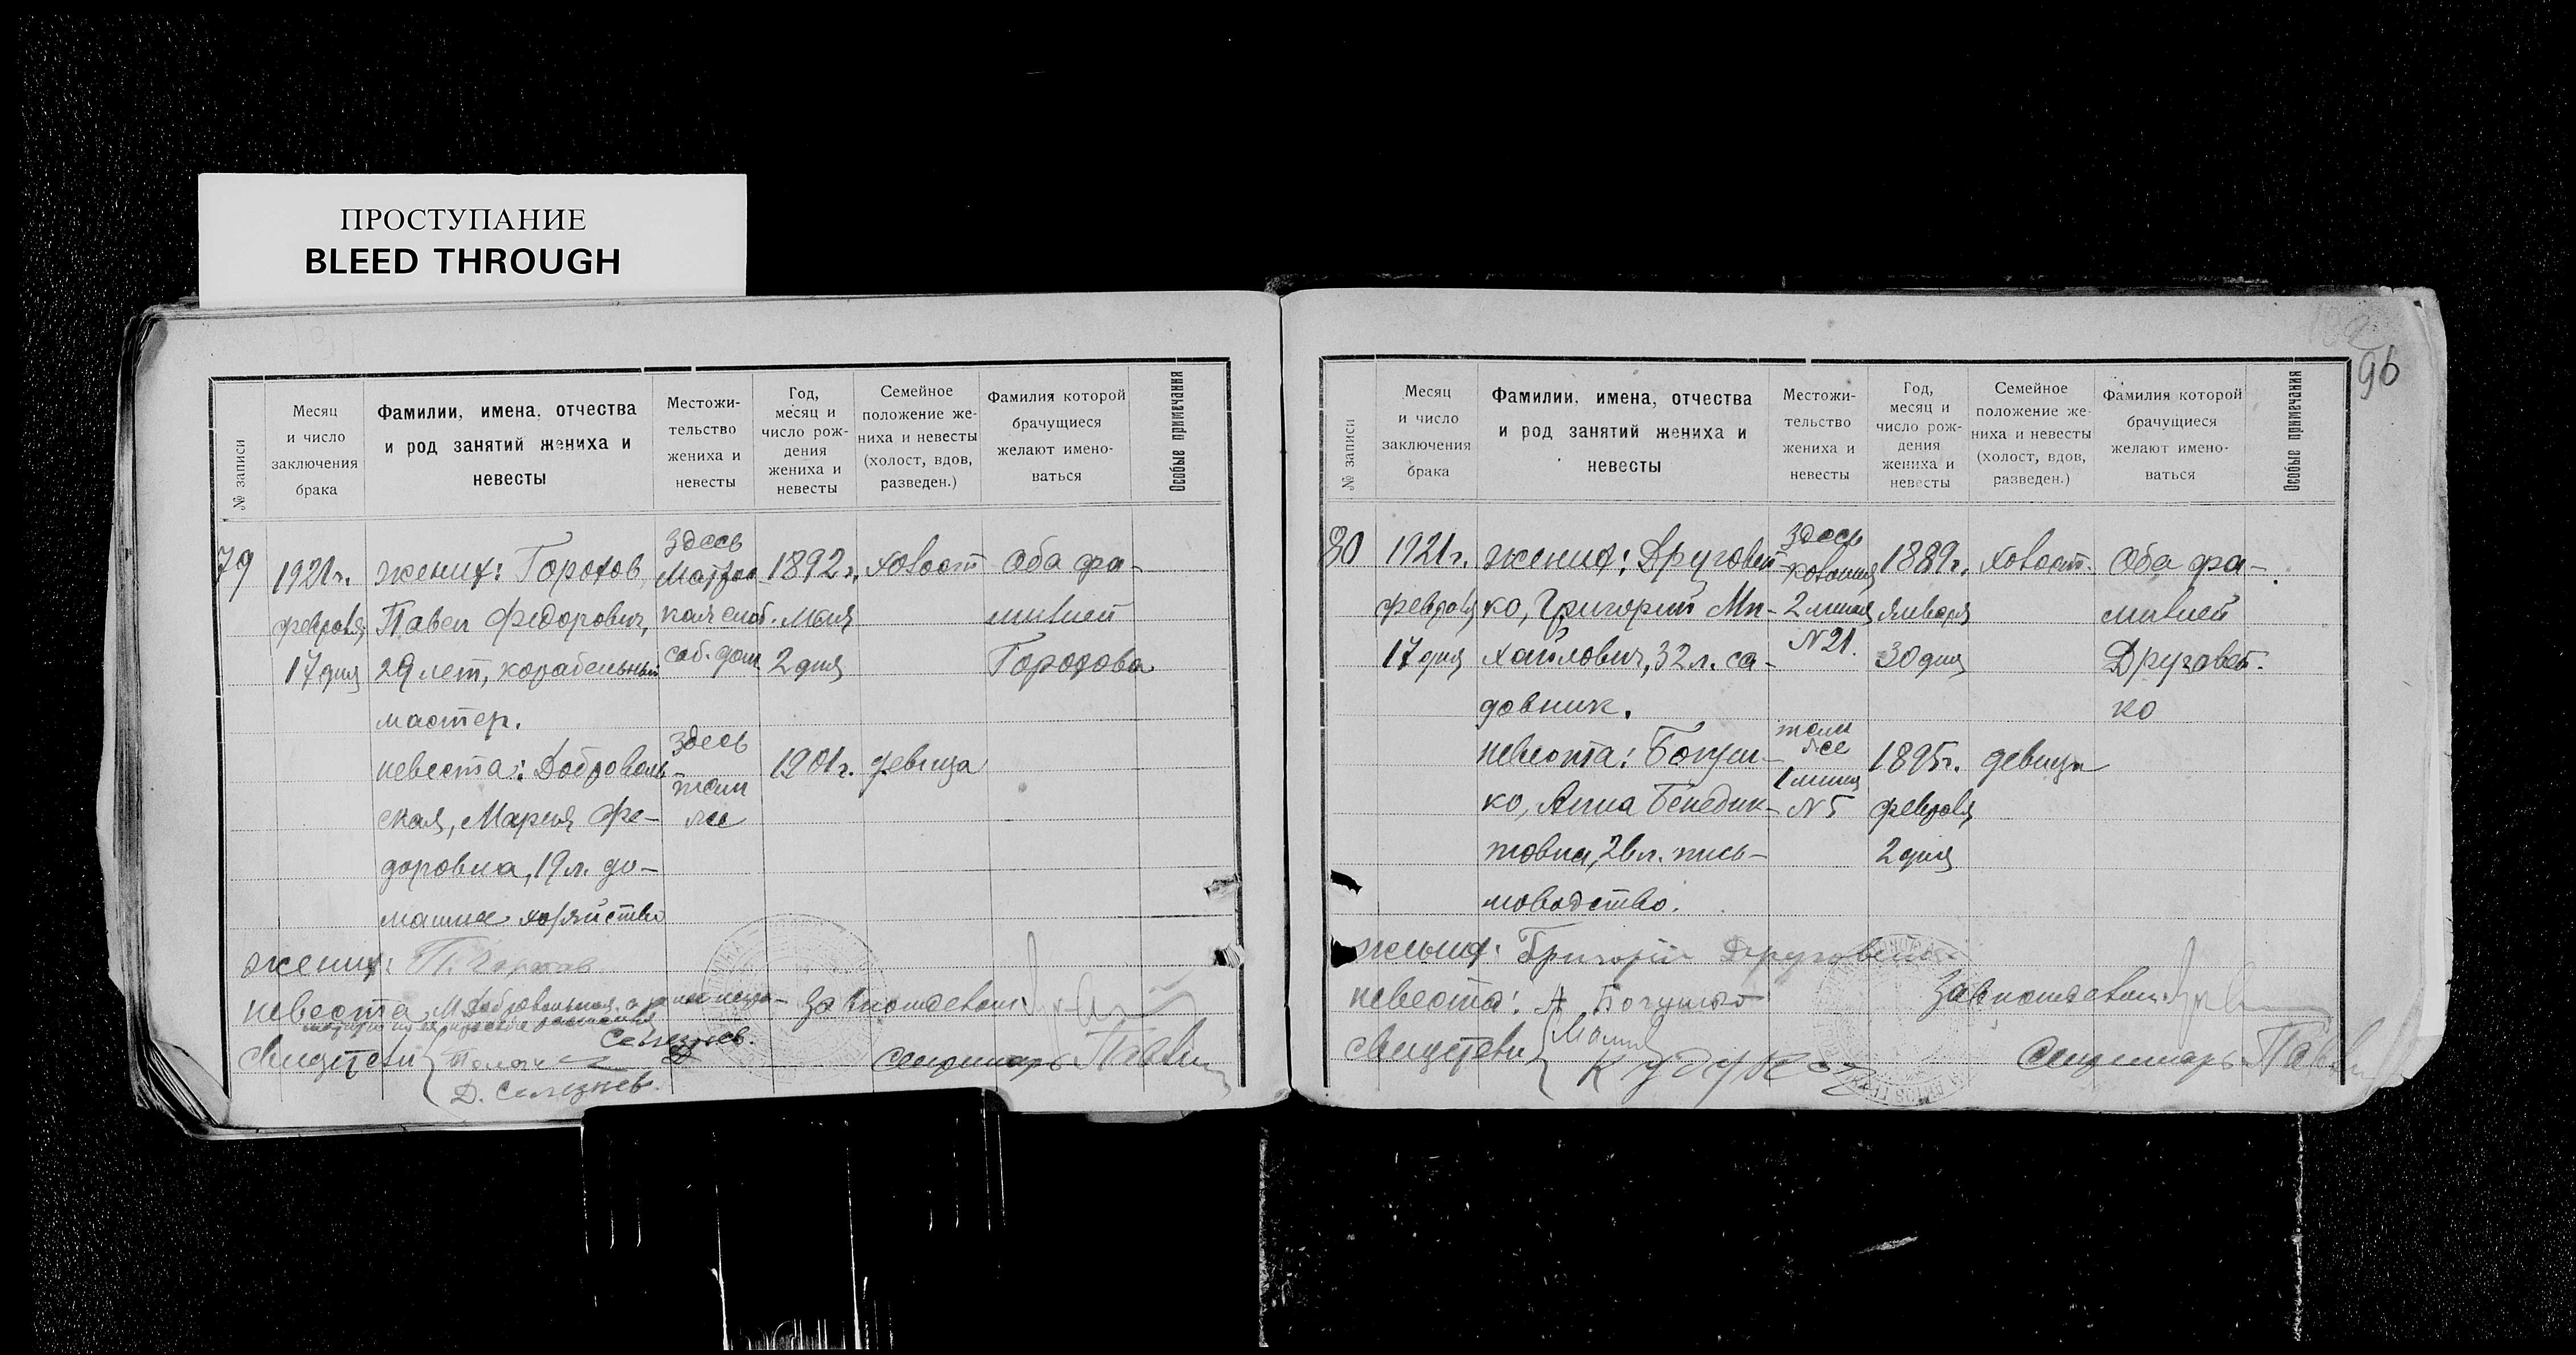 ПРОСТУПАНИЕ
BLEED THROUGH
96
№ записи
Месяц
и число
заключения
брака
Фамилии, имена, отчества
и род занятий жениха и
невесты
Местожи-
тельство
жениха и
невесты
Год,
месяц и
число рож-
дения
жениха и
невесты
Семейное
положение же-
ниха и невесты
(холост, вдов,
разведен.)
Фамилия которой
брачущиеся
желают имено-
ваться
Особые примечания
79
1921г.
февраля
17 дня
жених: Горохов
Павел Федорович,
29 лет, корабельный
мастер.
невеста: Доброволь-
ская, Мария Фе-
доровна, 19 л. до-
машнее хозяйство
здесь
кая слоб.
соб. дом
здесь
там
же
1892г.
мая
2 дня
1901г.
холост
девица
Оба фа-
милией
Горохова
жених: П. Горохов
невеста М. Добровольская
Свидетели
Селезнев.
Д. Селезнев.
Секретарь
№ записи
Месяц
и число
заключения
брака
Фамилии, имена, отчества
и род занятий жениха и
невесты
Местожи-
тельство
жениха и
невесты
Год,
месяц и
число рож-
дения
жениха и
невесты
Семейное
положение же-
ниха и невесты
(холост, вдов,
разведен.)
Фамилия которой
брачущиеся
желают имено-
ваться
Особые примечания
80
1921г.
февраля
17 дня
жених: Друговей-
ко, Григорий Ми-
хайлович, 32 л. са-
довник.
невеста: Богуш-
ко, Анна Бенедик-
товна, 26 л. пись-
моводство.
здесь
колония
2 линия
№ 21.
там
же
1 линия
№ 5
1889г.
января
30 дня
1895г.
февраля
2 дня
холост.
девица
Оба фа-
милией
Друговей-
ко
жених: Григорий Друговейко
невеста: А Богушко
Свидетели
Секретарь